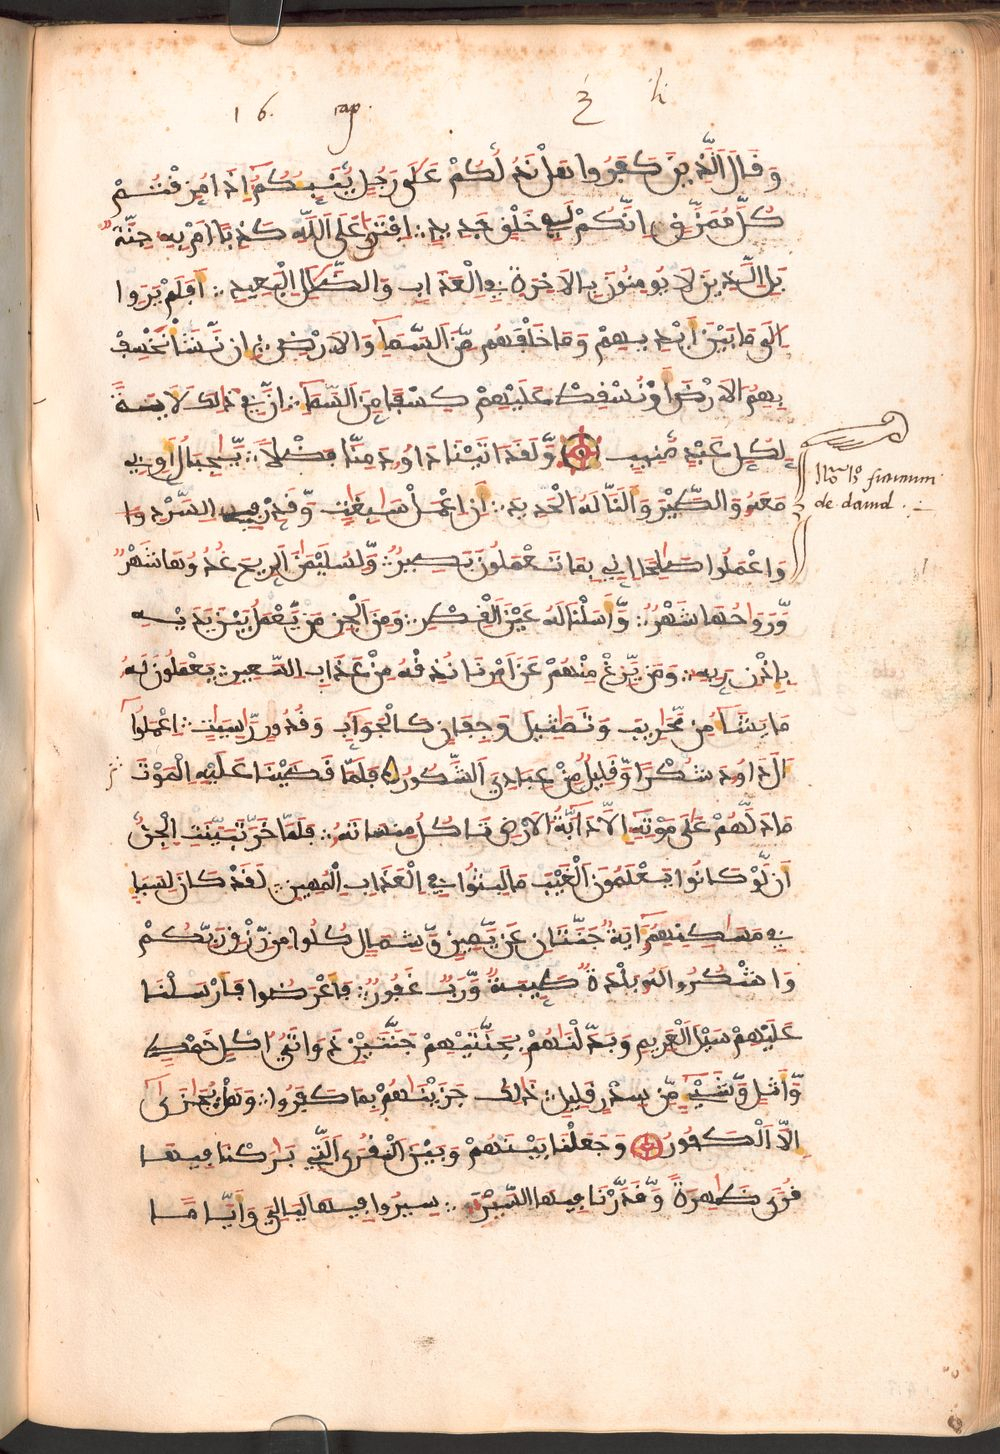 16. cap.
وَقَالَ الَّذِينَ كَفَرُوا هَلْ نَدُلُّكُمْ عَلَى رَجُلٍ يُنَبِّئُكُمْ إِذَا مُزِّقْتُمْ
كُلَّ مُمَزَّقٍ إِنَّكُمْ لَفِي خَلْقٍ جَدِيدٍ ∴ اَفْتَرَى عَلَى اللَّهِ كَذِبًا أَم بِهِ جِنَّةٌ
بَلِ الَّذِينَ لَا يُومِنُونَ بِالَاخِرَةِ فِي الْعَذَابِ وَالضَّلَلِ الْبَعِيدِ ∴ أَفَلَمْ يَرَوْا
إِلَى مَا بَيْنَ أَيْدِيهِمْ وَمَا خَلْفَهُم مِّنَ السَّمَاءِ وَالَارْضِ ∴ إِن نَّشَأْ نَخْسِفْ
بِهِمُ الَارْضَ أَوْ نُسْقِطْ عَلَيْهِمْ كِسْفًا مِّنَ السَّمَاءِ ∴ إِنَّ فِي ذَلِكَ لَايَةً
لِّكُلِّ عَبْدٍ مُّنِيبٍ وَلَقَدَ اتَيْنَا دَاوُدَ مِنَّا فَضْلًا ∴ يَجِبَالُ أَوِّبِي
مَعَهُ وَالطَّيْرَ وَأَلَنَّا لَهُ الْحَدِيدَ ∴ أَنِ اعْمَلْ سَبِغَتٍ وَقَدِّرْ فِي السَّرْدِ وَا
وَاعْمَلُوا صَلِحًا إِنِّي بِمَا تَعْمَلُونَ بَصِيرٌ ∴ وَلِسُلَيْمَنَ الرِّيحَ غُدُوُّهَا شَهْرٌ
وَرَوَاحُهَا شَهْرٌ ∴ وَأَسَلْنَا لَهُ عَيْنَ الْقِطْرِ ∴ وَمِنَ الْجِنِّ مَن يَعْمَلُ بَيْنَ يَدَيْهِ
بِإِذْنِ رَبِّهِ ∴ وَمَن يَزِغْ مِنْهُمْ عَنَ امْرِنَا نُذِقْهُ مِنْ عَذَابِ السَّعِيرِ ∴ يَعْمَلُونَ لَهُ
مَا يَشَاءُ مِن مَّحَرِيبَ وَتَمَثِيلَ وَجِفَانٍ كَالْجَوَابِ وَقُدُورٍ رَّاسِيَتٍ ∴ اعْمَلُوا
ءَالَ دَاوُدَ شُكْرًا وَقَلِيلٌ مِّنْ عِبَادِيَ الشَّكُورُ فَلَمَّا قَضَيْنَا عَلَيْهِ الْمَوْتَ
مَا دَلَّهُمْ عَلَى مَوْتِهِ إِلَّا دَابَّةُ الَارْضِ تَاكُلُ مِنسَاتَهُ ∴ فَلَمَّا خَرَّ تَبَيَّنَتِ الْجِنُّ
أَن لَّوْ كَانُوا يَعْلَمُونَ الْغَيْبَ مَا لَبِثُوا فِي الْعَذَابِ الْمُهِينِ ∴ لَقَدْ كَانَ لِسَبَإٍ
فِي مَسَكِنِهِمُ ءَايَةٌ جَنَّتَانِ عَن يَمِينٍ وَشِمَالٍ كُلُوا مِن رِّزْقِ رَبِّكُمْ
وَاشْكُرُوا لَهُ بَلْدَةٌ طَيِّبَةٌ وَرَبٌّ غَفُورٌ ∴ فَأَعْرَضُوا فَأَرْسَلْنَا
عَلَيْهِمْ سَيْلَ الْعَرِمِ وَبَدَّلْنَاهُمْ بِجَنَّتَيْهِمْ جَنَّتَيْنِ ذَوَاتَيُ اكْلٍ خَمْطٍ
وَأَثْلٍ وَشَيْءٍ مِّن سِدْرٍ قَلِيلٍ ∴ ذَلِكَ جَزَيْنَاهُمْ بِمَا كَفَرُوا ∴ وَهَلْ يُجَازَى
إِلَّا الْكَفُورُ وَجَعَلْنَا بَيْنَهُمْ وَبَيْنَ الْقُرَى الَّتِي بَارَكْنَا فِيهَا
قُرًى ظَاهِرَةً وَقَدَّرْنَا فِيهَا السَّيْرَ ∴ سِيرُوا فِيهَا لَيَالِيَ وَأَيَّامًا
de dauid.